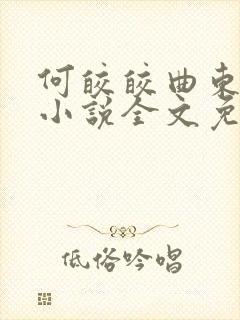 何皎皎曲東
小說全文免
低俗吟唱